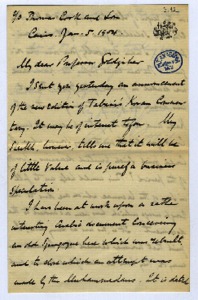 c/o Thomas Cook and Son
Cairo Jan. 5. 1904
My dear Professor Goldziher
I sent you yesterday an announcement
of the new edition of Tabari's Koran Commen-
tary. It may be of interest to you. My
Sheikh however tells me that it will be
of little value and is purely a business
speculation.
I have been at work upon a rather
interesting Arabic document concerning
an old synagogue here which was rebuilt
and to which an attempt was
made by the Muhammedans. It is dated